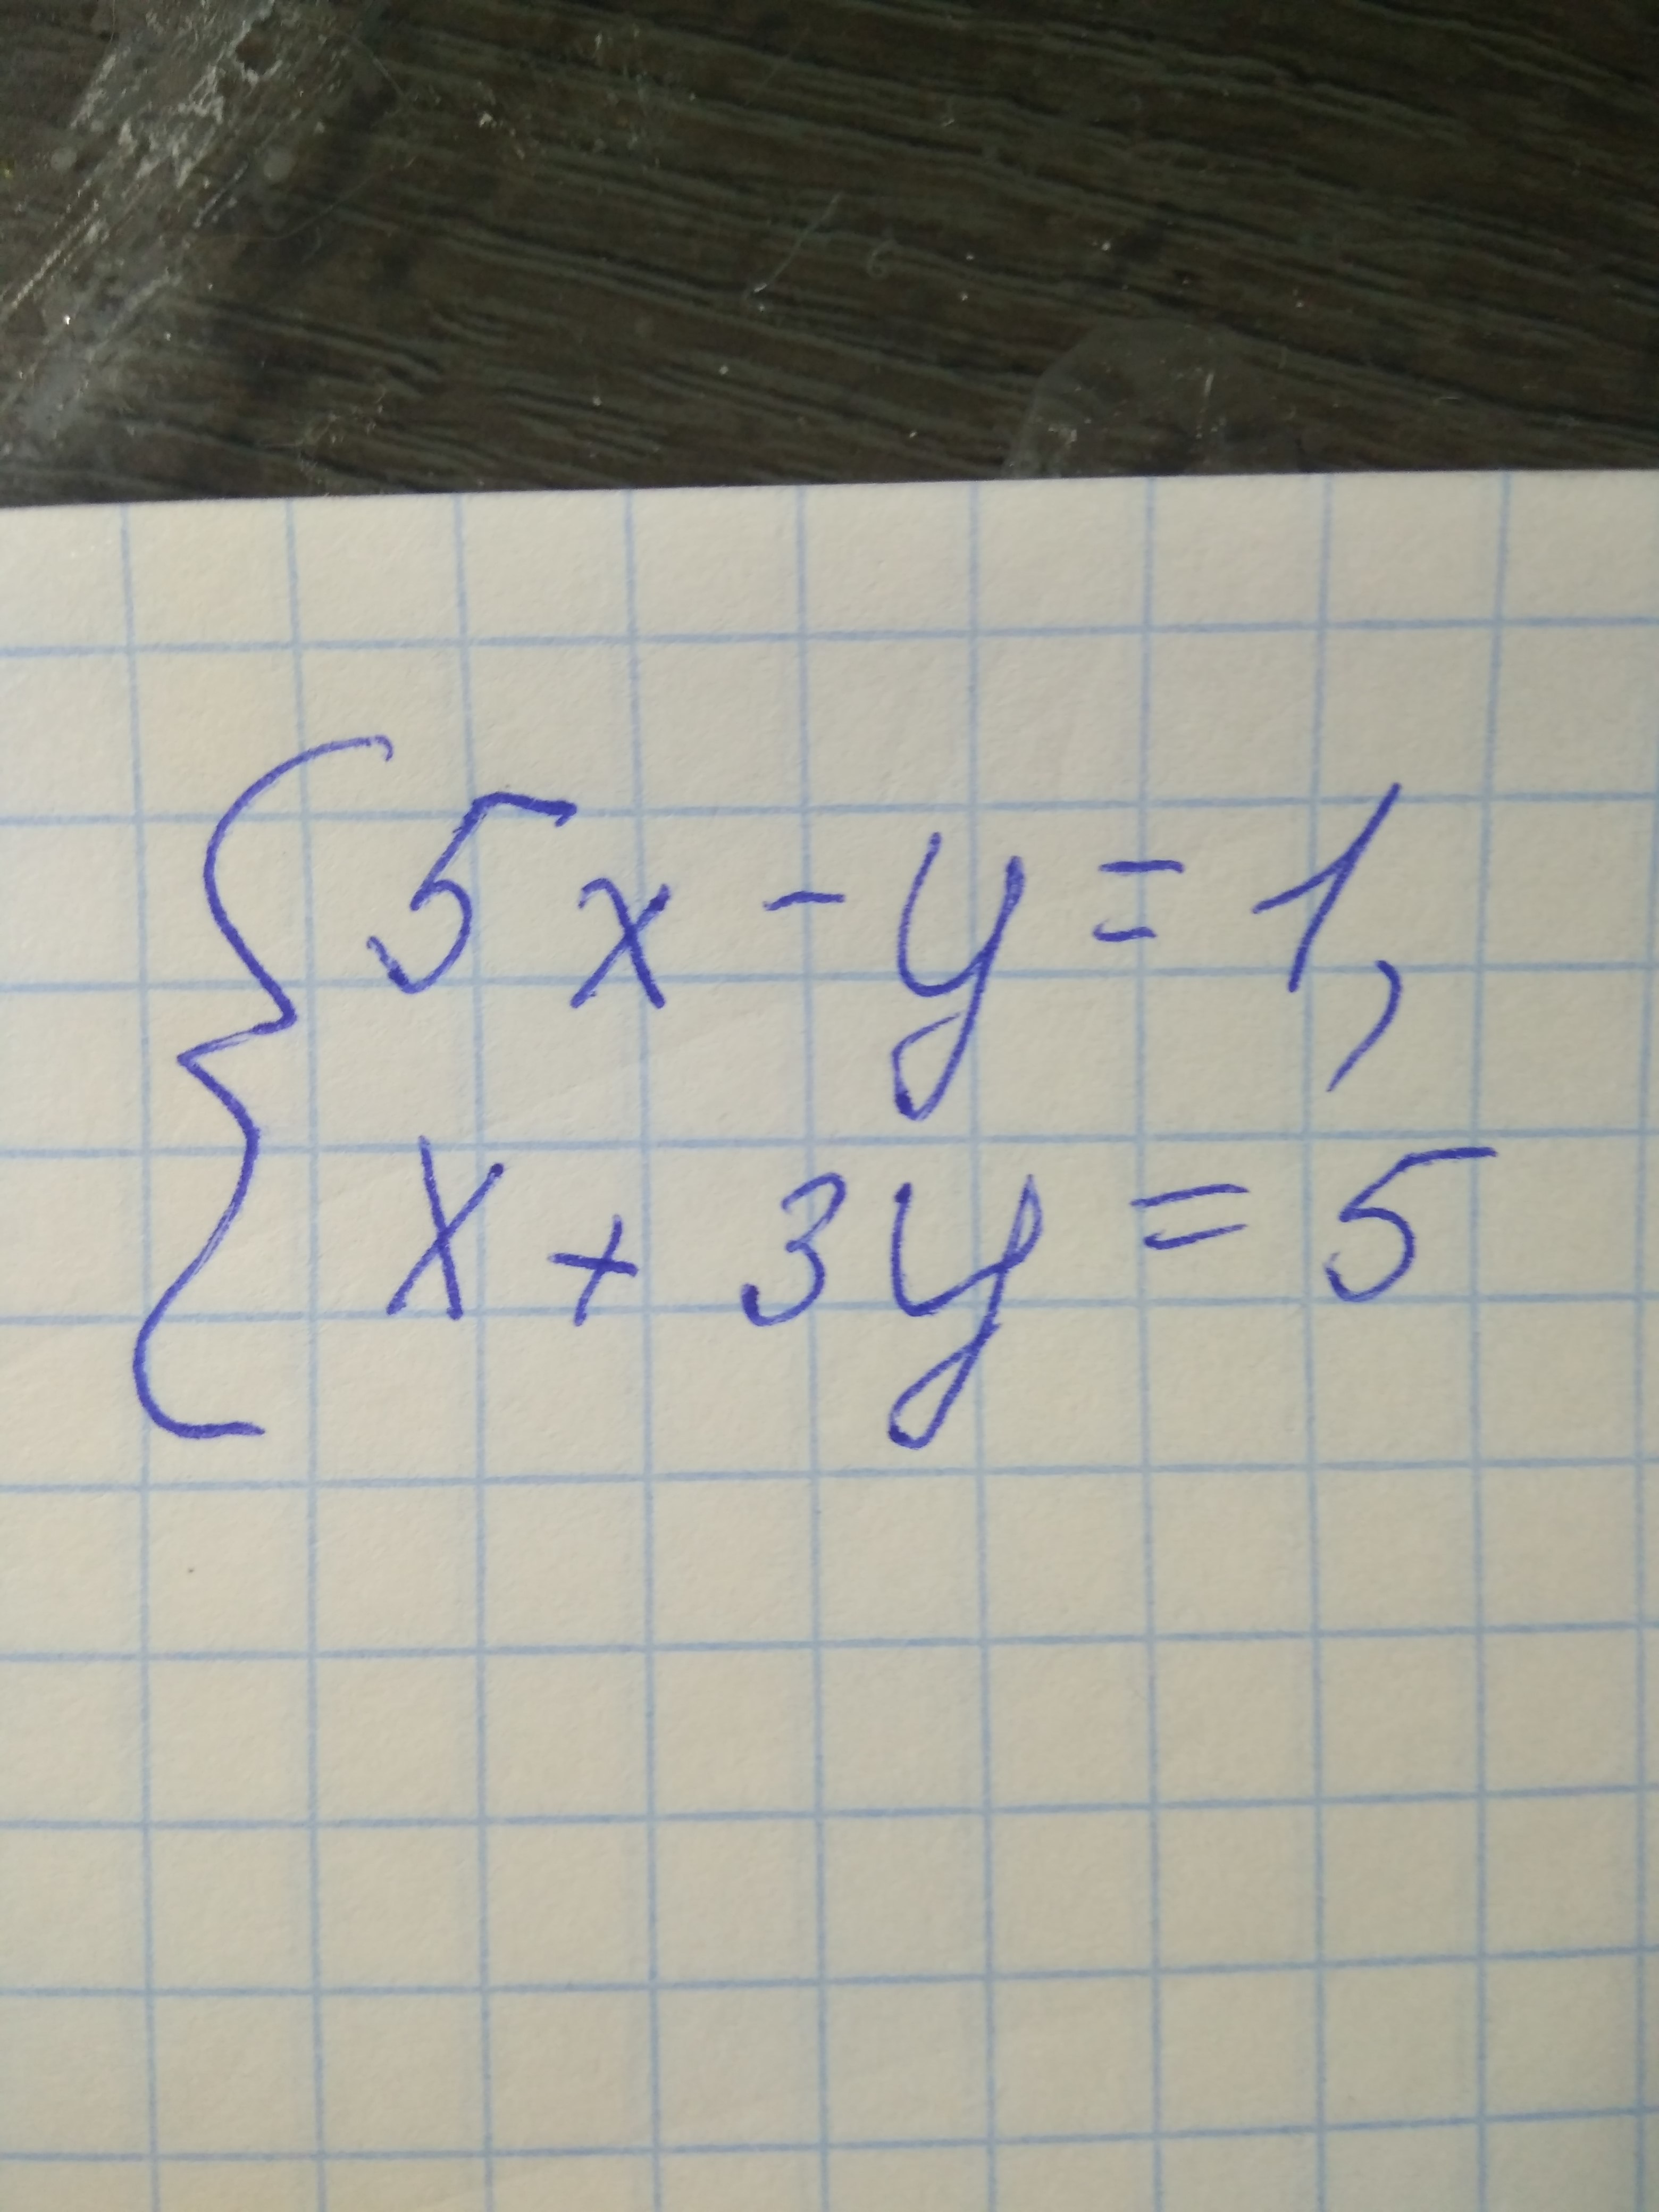 5x - y = 1,
x + 3y = 5